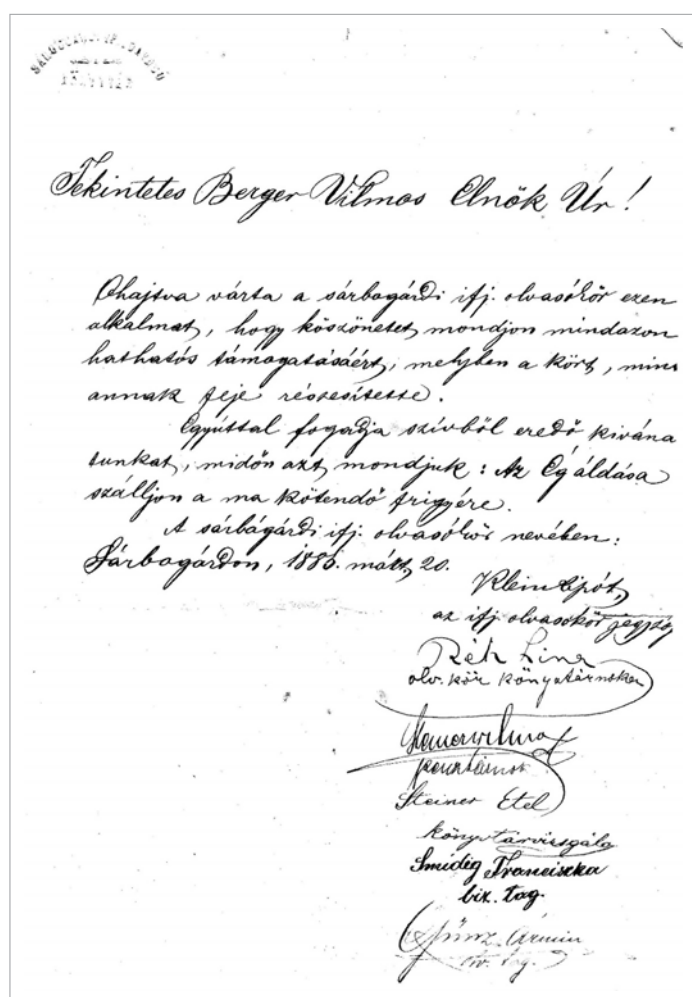 Tekintetes Berger Vilmos Elnök Úr!
Óhajtva várta a sárbogárdi ifj. olvasókör ezen
alkalmat, hogy köszönetet mondjon mindazon
hathatós támogatásáért, melyben a kört, mint
annak feje részesítette.
Egyúttal fogadja szívből eredő kívána
tunkat, midőn azt mondjuk: Az Ég áldása
szálljon a ma kötendő frigyére.
A sárbágárdi ifj. olvasókör nevében:
Sárbogárdon, 1886. márt. 20.
Klein Lipót,
az ifj. olvasókör jegyzője
Réh Lina
olv. kör könyvtárnoka
pénztárnok
Steiner Etel
könyvtárvizsgáló
Smideg Francziska
biz. tag.
Ármin
tag.